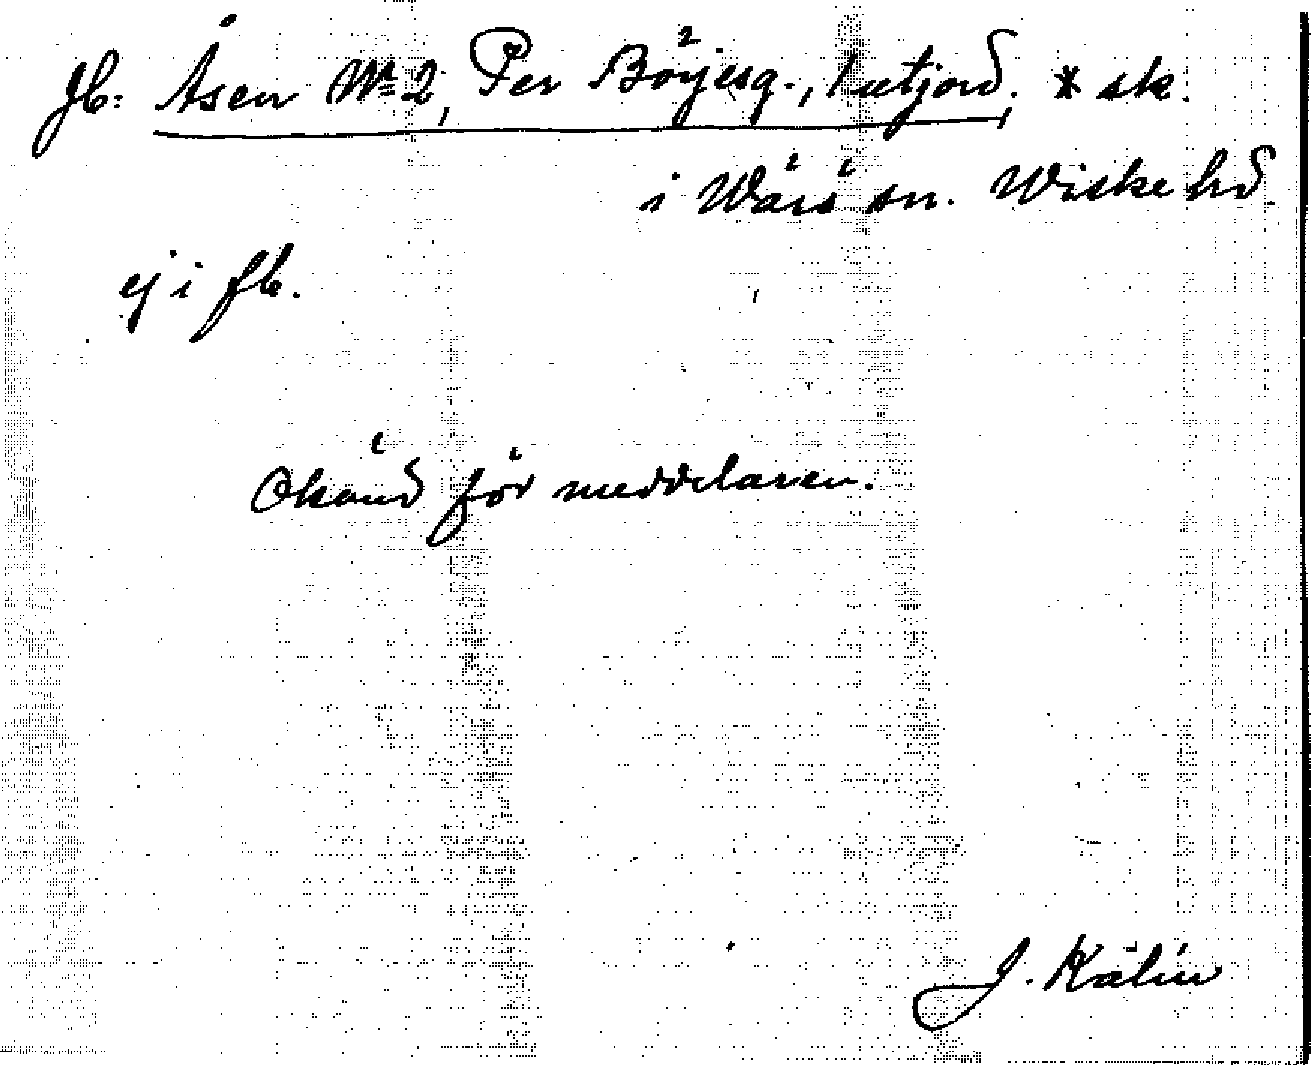 Jb: Åsen No 2, Per Böjesg., utjord. * sk.
i Wärö sn. Wiske hd.
ej i fb.
Okänd för meddelaren.
J. Kalén